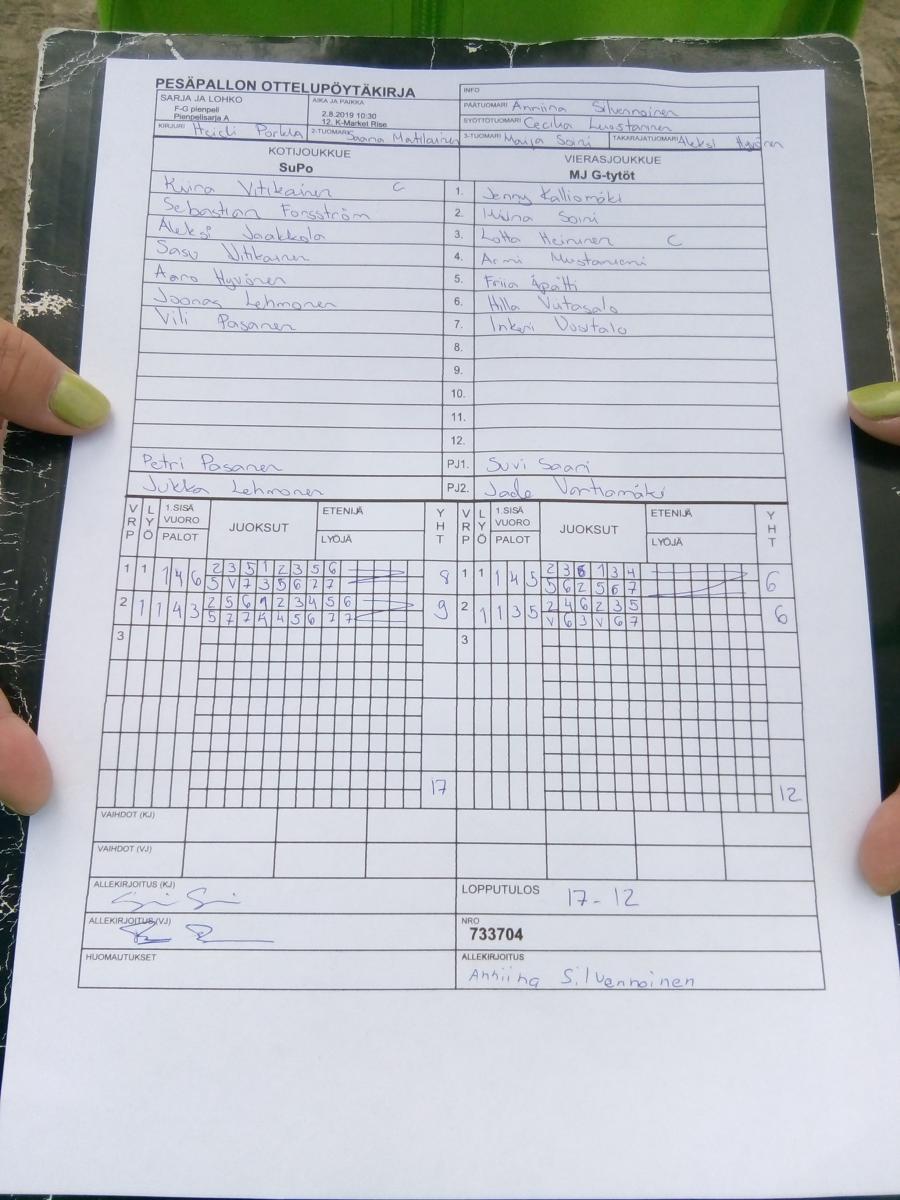 PESÄPALLON OTTELUPÖYTÄKIRJA
INFO
SARJA JA LOHKO
F-G pienpeli
Pienpelisarja A
AIKA JA PAIKKA
2.8.2019 10:30
12. K-Market Rise
PÄÄTUOMARI Anniina Silvennoinen
SYÖTTÖTUOMARI Cecilia
KIRJURI Heidi Porkka 2-TUOMARI Saana Matilainen 3-TUOMARI Maija Soini TAKARAJATUOMARI Aleksi Hyvönen
KOTIJOUKKUE
SuPo
VIERASJOUKKUE
MJ G-tytöt
Vitikainen C 1. Jenny Kalliomäki
Sebastian Forsström 2. Soini
Aleksi Jaakkola 3. Lotta Heininen C
Sasu Vitikainen 4. Armi Mustaniemi
Aaro Hyvönen 5. Friia Äpätti
Joonas Lehmonen 6. Hilla Viitasalo
Vili Pasanen 7. Inkeri Vuotalo
8.
9.
10.
11.
12.
Petri Pasanen PJ1. Suvi Saari
Jukka Lehmonen PJ2. Jade Vantiamäki
VRP LYÖ 1.SISÄ VUORO PALOT JUOKSUT ETENIJÄ LYÖJÄ YHT VRP LYÖ 1.SISÄ VUORO PALOT JUOKSUT ETENIJÄ LYÖJÄ YHT
1 1 1 4 6 2 3 5 1 2 3 5 6 8 1 1 1 4 5 2 3 6 1 3 4 6
5 V 7 3 5 6 7 7 5 6 2 5 6 7
2 1 1 4 3 2 5 6 1 2 3 4 5 6 9 2 1 1 3 5 2 4 6 2 3 5 6
5 7 7 4 4 5 6 7 7 V 6 3 V 6 7
3 3
17 12
VAIHDOT (KJ)
VAIHDOT (VJ)
ALLEKIRJOITUS (KJ)
LOPPUTULOS 17-12
ALLEKIRJOITUS (VJ)
NRO
733704
HUOMAUTUKSET
ALLEKIRJOITUS
Anniina Silvennoinen